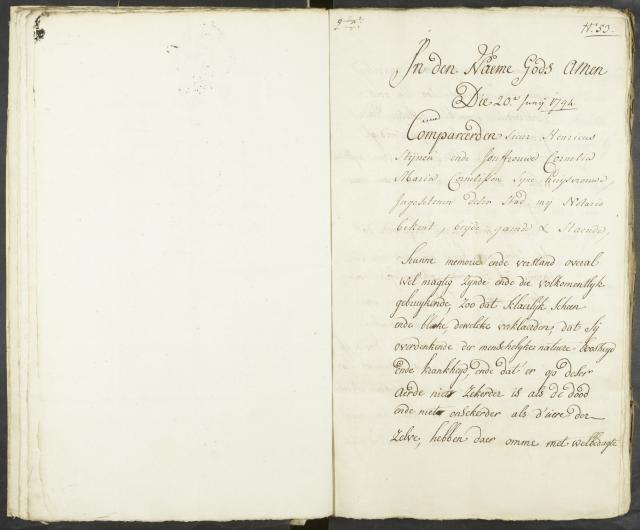 N.º 53.
In den Naeme Gods Amen
Die 20.ª Junij 1794
Compareerden Sieur Henricus
Stijnen ende Jouffrouwe Cornelia
Maria Cornelissen syne Huysvrouwe,
Ingesetenen deser Stad my Notario
bekent, beyde gaende & Staende,
hunne memorie ende verstand overal
wel magtig zynde ende die volkomentlyk
gebruykende, zoo dat klaerlijk scheen
ende bleke, dewelcke verklaerden, dat sij
overdenkende der menschelyke natuere broosheyd
ende krankheyd, ende dat er op deser
aerde niet zekerder is als de dood
ende niet onsekerder als d'uere der
zelve, hebben daer omme met welbedagte